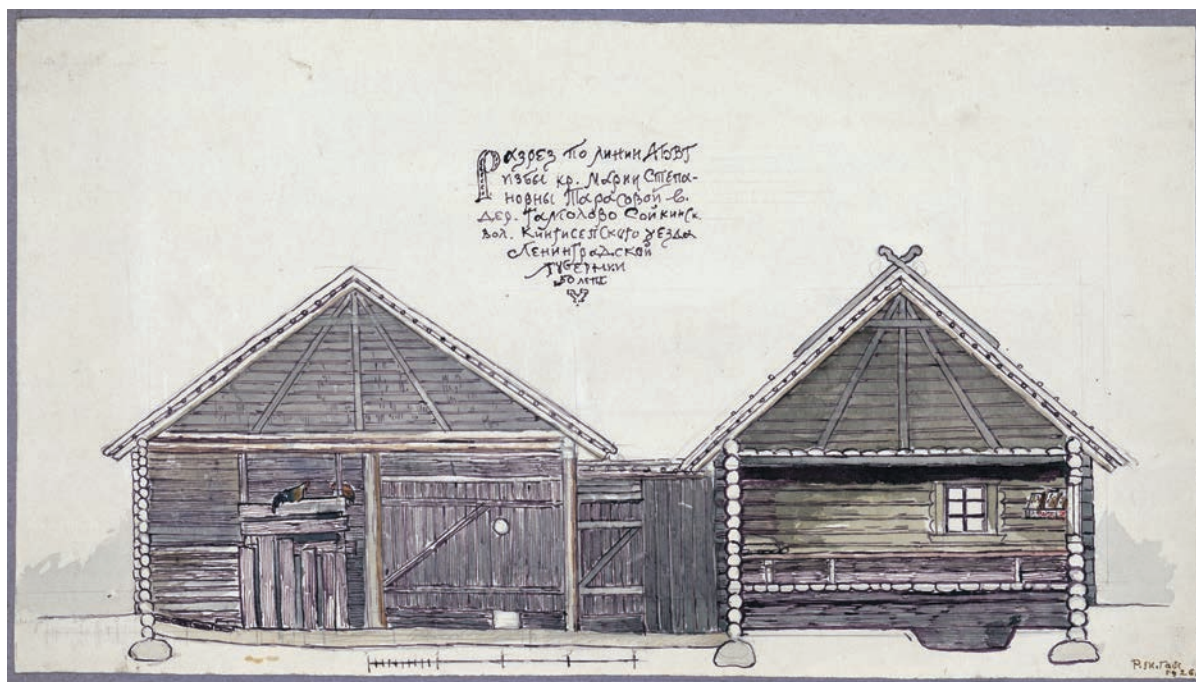 Разрез по линии АБВГ
избы кр. Марии Степа-
новны Тарасовой в.
дер. Гамолово Сойкинск.
вол. Кингисепского уезда
Ленинградской
губернии
50 лет
1926